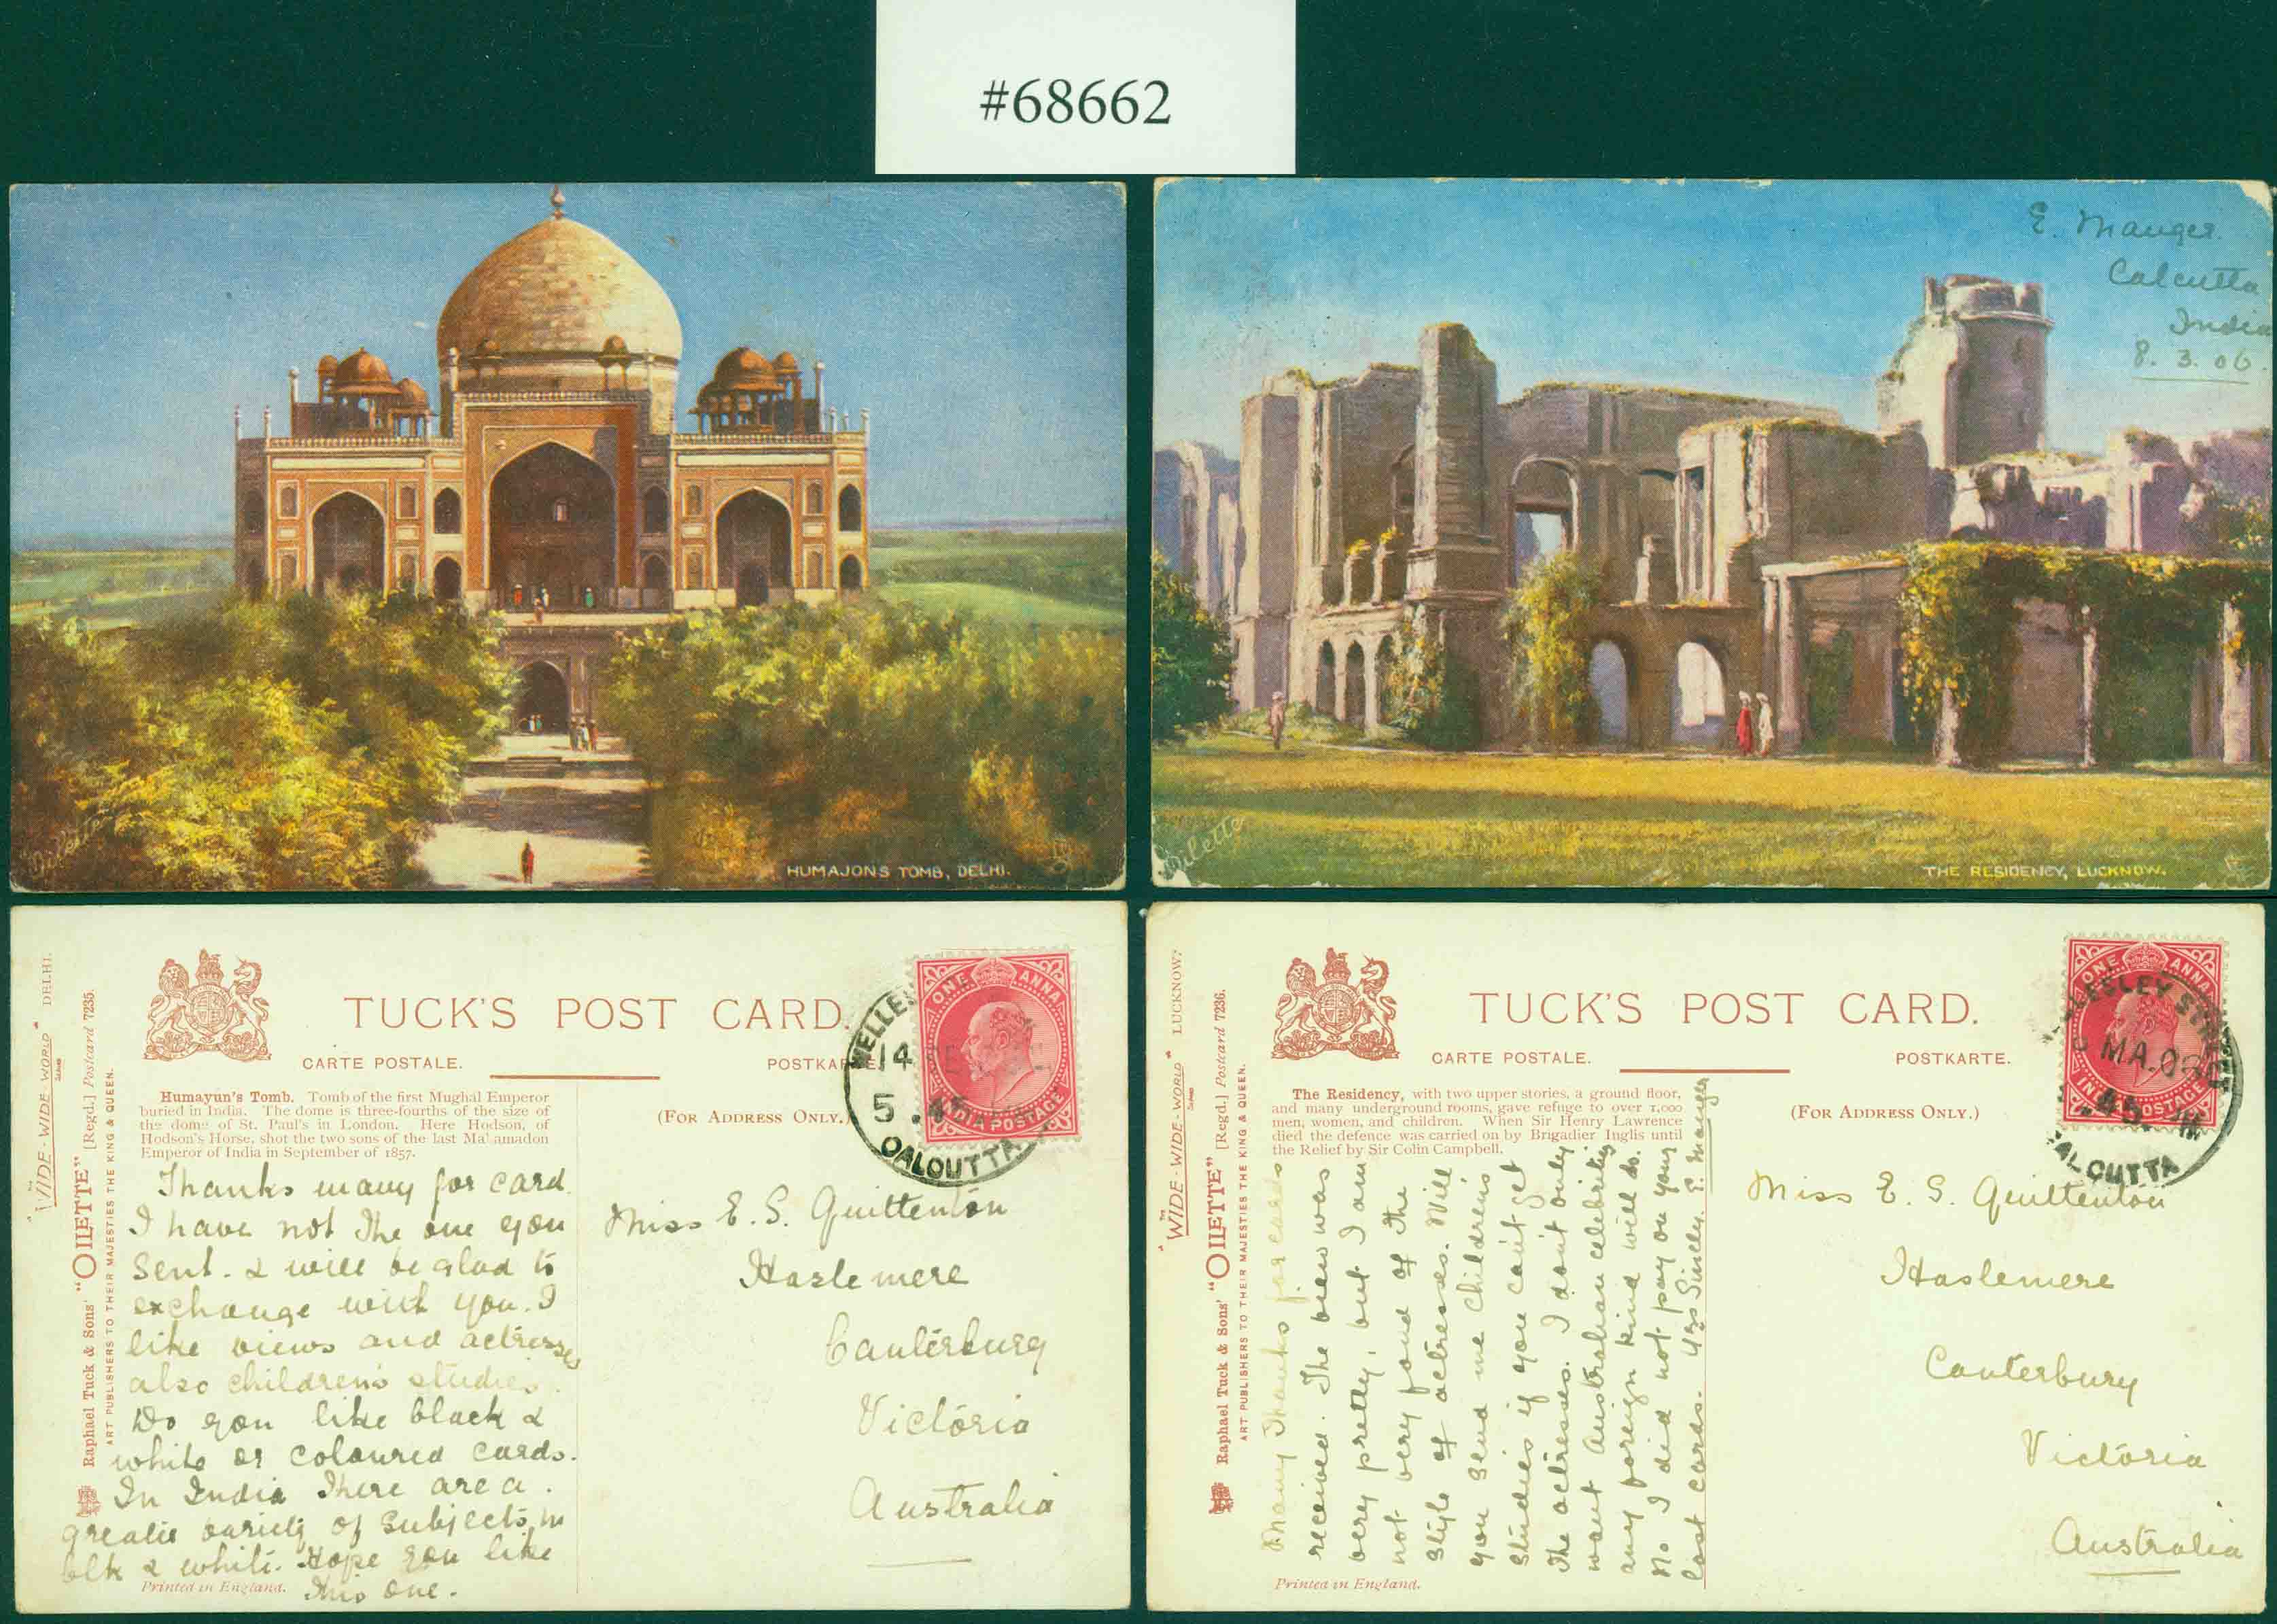 #68662
HUMAJONS TOMB, DELHI.
"Oilette"
E. Mauger.
Calcutta
India
8.3.06.
Oilette
THE RESIDENCY, LUCKNOW.
TUCK'S POST CARD.
CARTE POSTALE.
POSTKARTE.
(FOR ADDRESS ONLY.)
"THE WIDE-WIDE-WORLD" SERIES DELHI.
Raphael Tuck & Sons' "OILETTE" [Regd.] Postcard 7235.
ART PUBLISHERS TO THEIR MAJESTIES THE KING & QUEEN.
Humayun's Tomb. Tomb of the first Mughal Emperor
buried in India. The dome is three-fourths of the size of
the dome of St. Paul's in London. Here Hodson, of
Hodson's Horse, shot the two sons of the last Mahamadon
Emperor of India in September of 1857.
Thanks many for card.
I have not the one you
sent. & will be glad to
exchange with you. I
like views and actresses
also children's studies.
Do you like black &
white or coloured cards.
In India there are a
greater variety of subjects in
blk & white. Hope you like
this one.
Printed in England.
ONE ANNA
INDIA POSTAGE
WELLE
14
5.45
CALCUTTA
Miss E. S. Quittenton
Haslemere
Canterbury
Victoria
Australia
TUCK'S POST CARD.
CARTE POSTALE.
POSTKARTE.
(FOR ADDRESS ONLY.)
"THE WIDE-WIDE-WORLD" SERIES LUCKNOW
Raphael Tuck & Sons' "OILETTE" [Regd.] Postcard 7236.
ART PUBLISHERS TO THEIR MAJESTIES THE KING & QUEEN.
The Residency, with two upper stories, a ground floor,
and many underground rooms, gave refuge to over 1,000
men, women, and children. When Sir Henry Lawrence
died the defence was carried on by Brigadier Inglis until
the Relief by Sir Colin Campbell.
Many thanks for cards
received. The view was
very pretty, but I am
not very fond of the
style of actresses. Will
you send me children's
studies if you can't get
the actresses. I don't only
want Australian celebrities
any foreign kind will do.
No I did not pay on your
last cards. Yrs Sincely. E. Mauger
Printed in England.
ONE ANNA
INDIA POSTAGE
LESLEY STREET
MA.06
.45
ALCUTTA
Miss E. S. Quittenton
Haslemere
Canterbury
Victoria
Australia